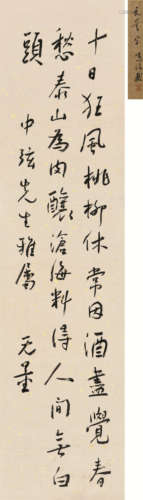 十日狂風桃柳休常因酒盡覺春
愁泰山為肉釀滄海料得人間無白
頭
中弦先生雅屬
无量